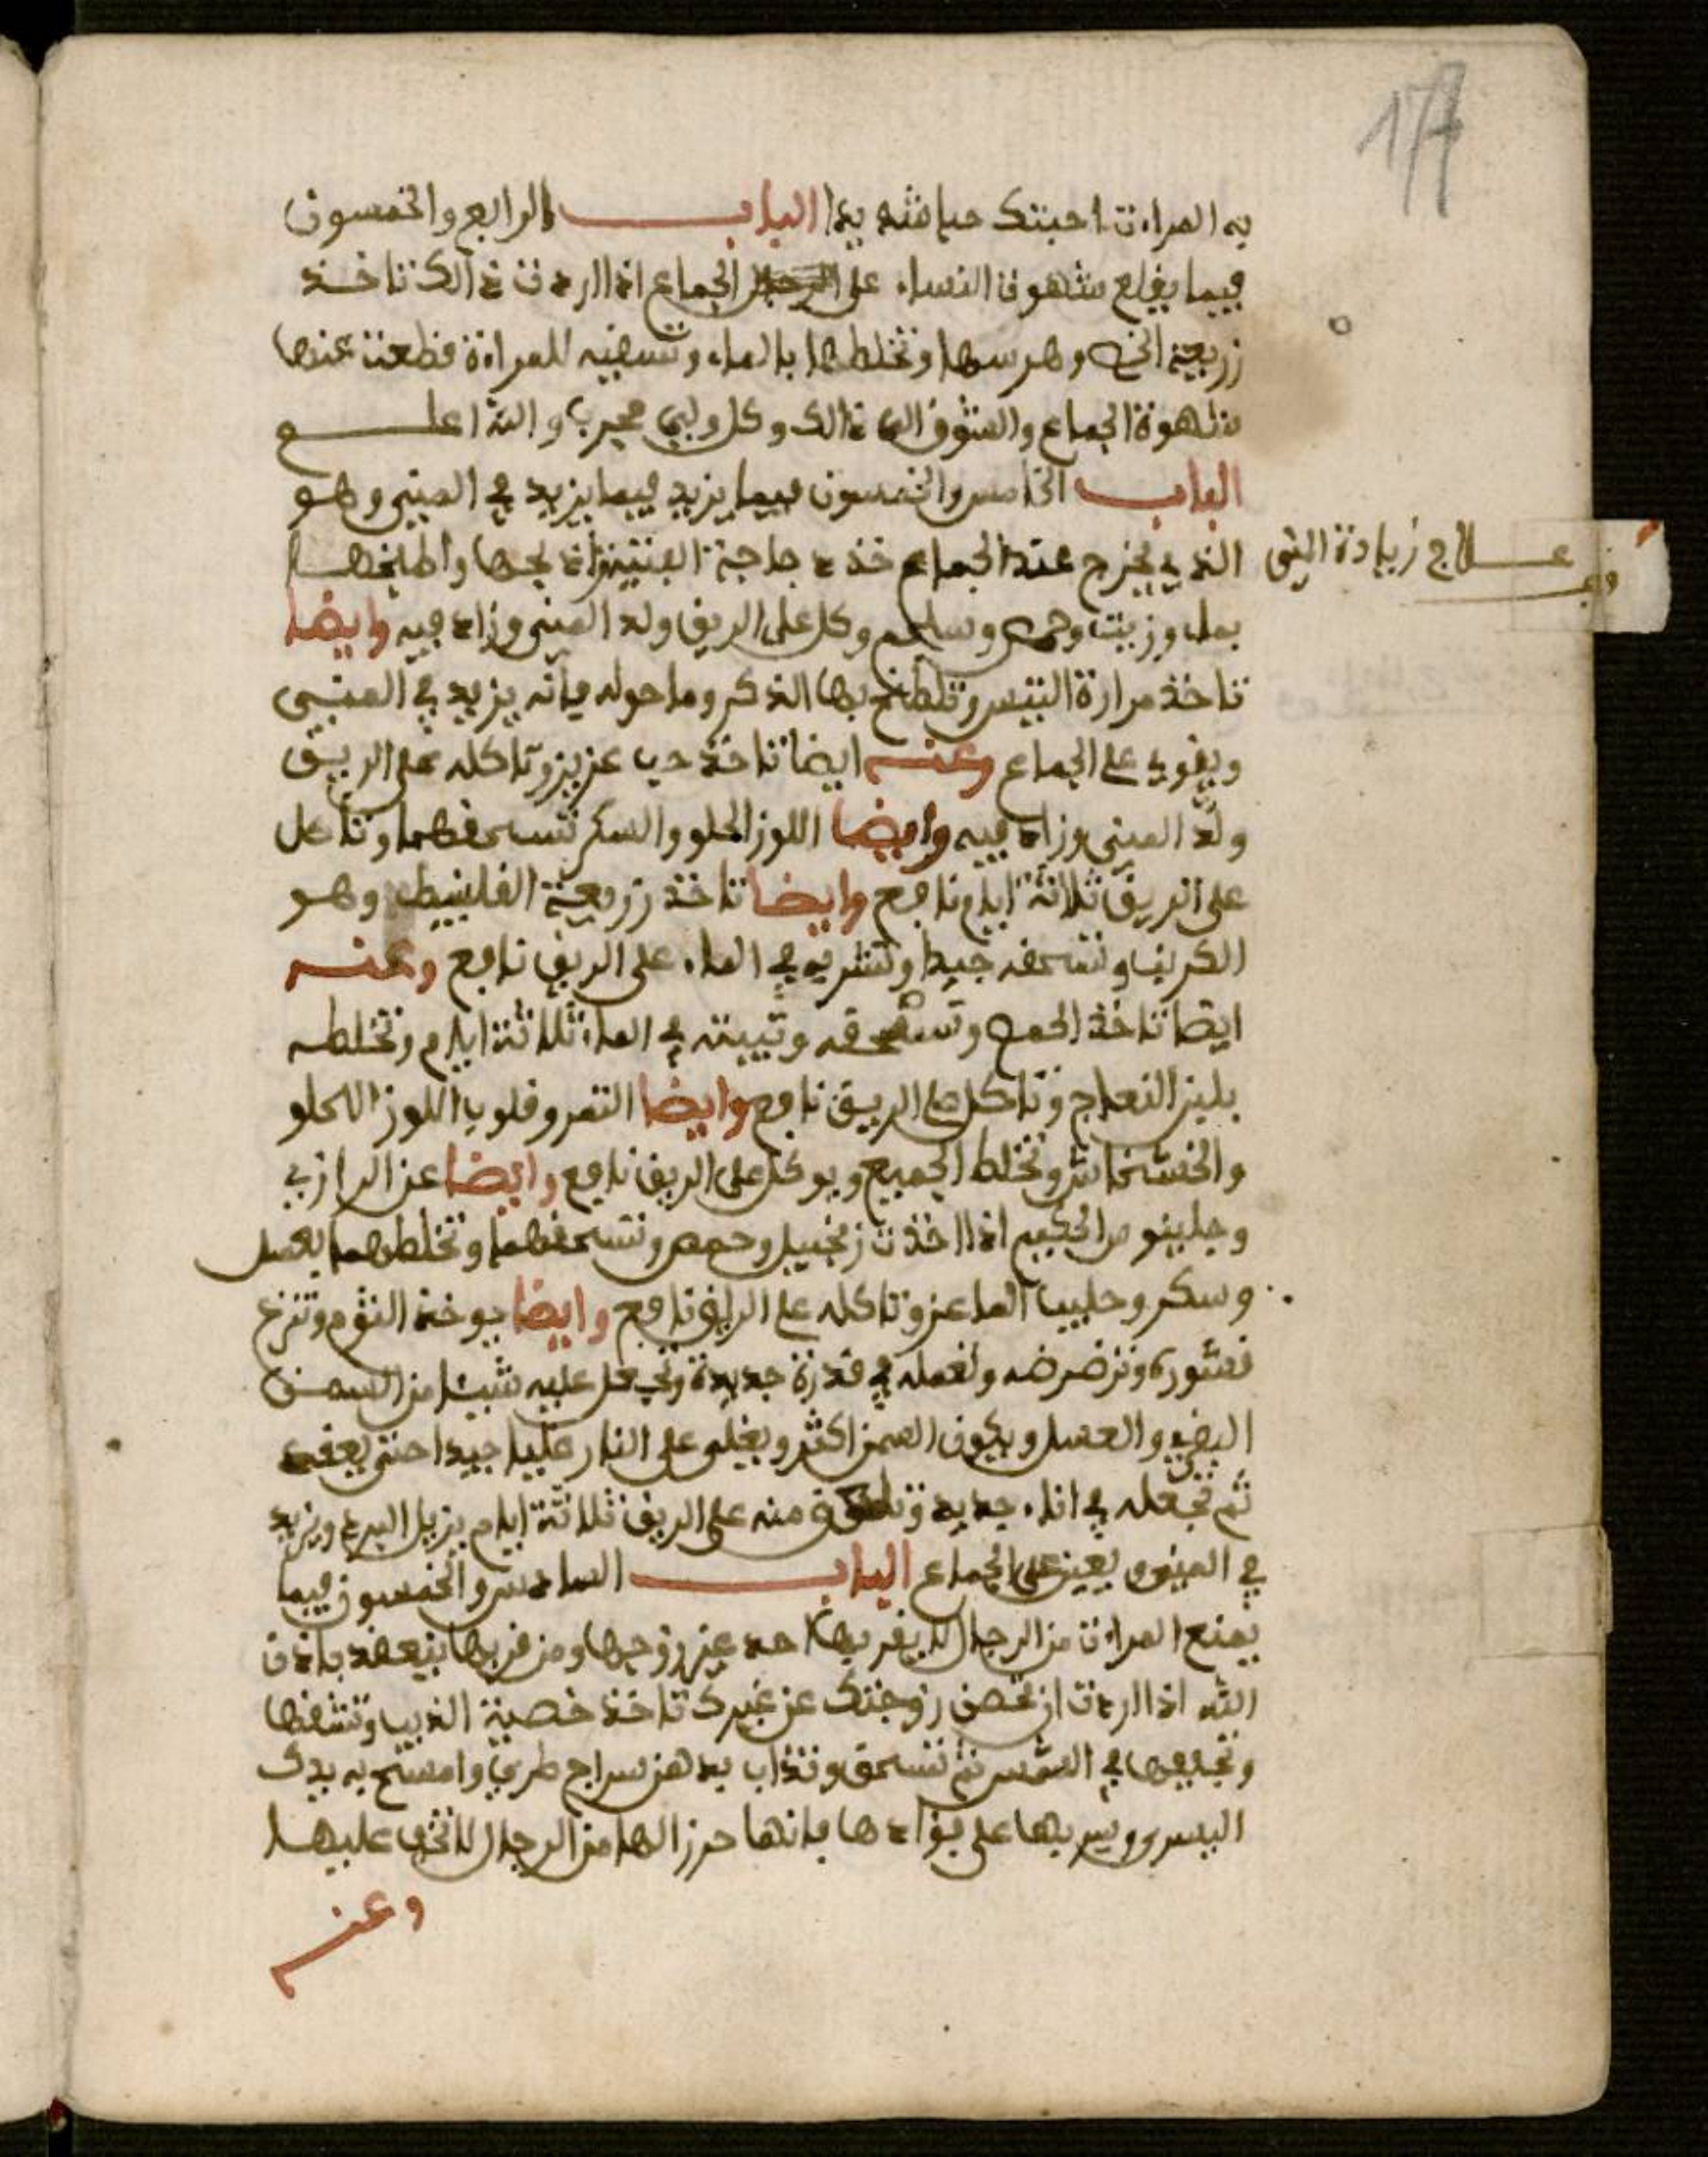 17
به المراءت احبتك حبا شديدا الباب الرابع والخمسون
فيما يقلع شهوت النساء على الجماع اذا اردت ذالك تاخذ
زريعة الخس وهرسها وتخلطها بالماء وتسقيه للمراءة قطعت عنها
شهوة الجماع والشوق الى ذالك وكل ولي مجرب والله اعلم
الباب الخامس والخمسون فيما يزيد فيما يزيد في المني وهو
الذي يخرج عند الجماع خذ دجاجة اذبحها واطبخها
علاج زيادة المنى
بماء وزيت وحمص وسلجم وكل على الريق ولد المني وزاد فيه وايضا
تاخذ مرارة التيس وتلطخ بها الذكر وما حوله فإنه يزيد في المني
ويقوي على الجماع وعنه ايضا تاخذ حب عزيز وتاكله على الريق
ولد المني وزاد فيه وايضا اللوز الحلو والسكر تسحقهما وتاكل
على الريق ثلاثة ايام نافع وايضا تاخذ زريعة القلنيط وهو
الكرنب وتسحقه جيدا وتشربه في الماء على الريق نافع وعنه
ايضا تاخذ الحمص وتسحقه وتبيته في الماء ثلاثة ايام وتخلطه
بلبن النعاج وتاكل على الريق نافع وايضا التمر وقلوب اللوز الحلو
والخشخاش وتخلط الجميع ويوكل على الريق نافع وايضا عن الرازي
وجلينوس الحكيم اذا اخذت زنجبيل وحمص وتسحقهما وتخلطهما بعسل
وسكر وحليب الماعز وتاكله على الريق نافع وايضا يوخذ الثوم وتنزع
قشوره وترضرضه ولعمله في قدرة جديدة وتجعل عليه شيئا من السمن
البقري والعسل ويكون السمن اكثر ويغلى على النار غليا جيدا حتى يعقد
ثم تجعله في اناء جديد وتلعق منه على الريق ثلاثة ايام يزيل البرد ويزيد
في المني ويعين على الجماع الباب السادس والخمسون فيما
يمنع المراءت من الرجال لا يقربها احد غير زوجها ومن قربها ينعقد باذن
الله اذا اردت ان تحصن زوجتك عن غيرك تاخذ خصية الذيب وتشقها
وتجففها في الشمس ثم تسحق وتذاب بدهن سراج طري وامسح به يدك
اليسرى وسر بها على فؤادها فانها حرزا لها من الرجال لا تخف عليها
وعنه